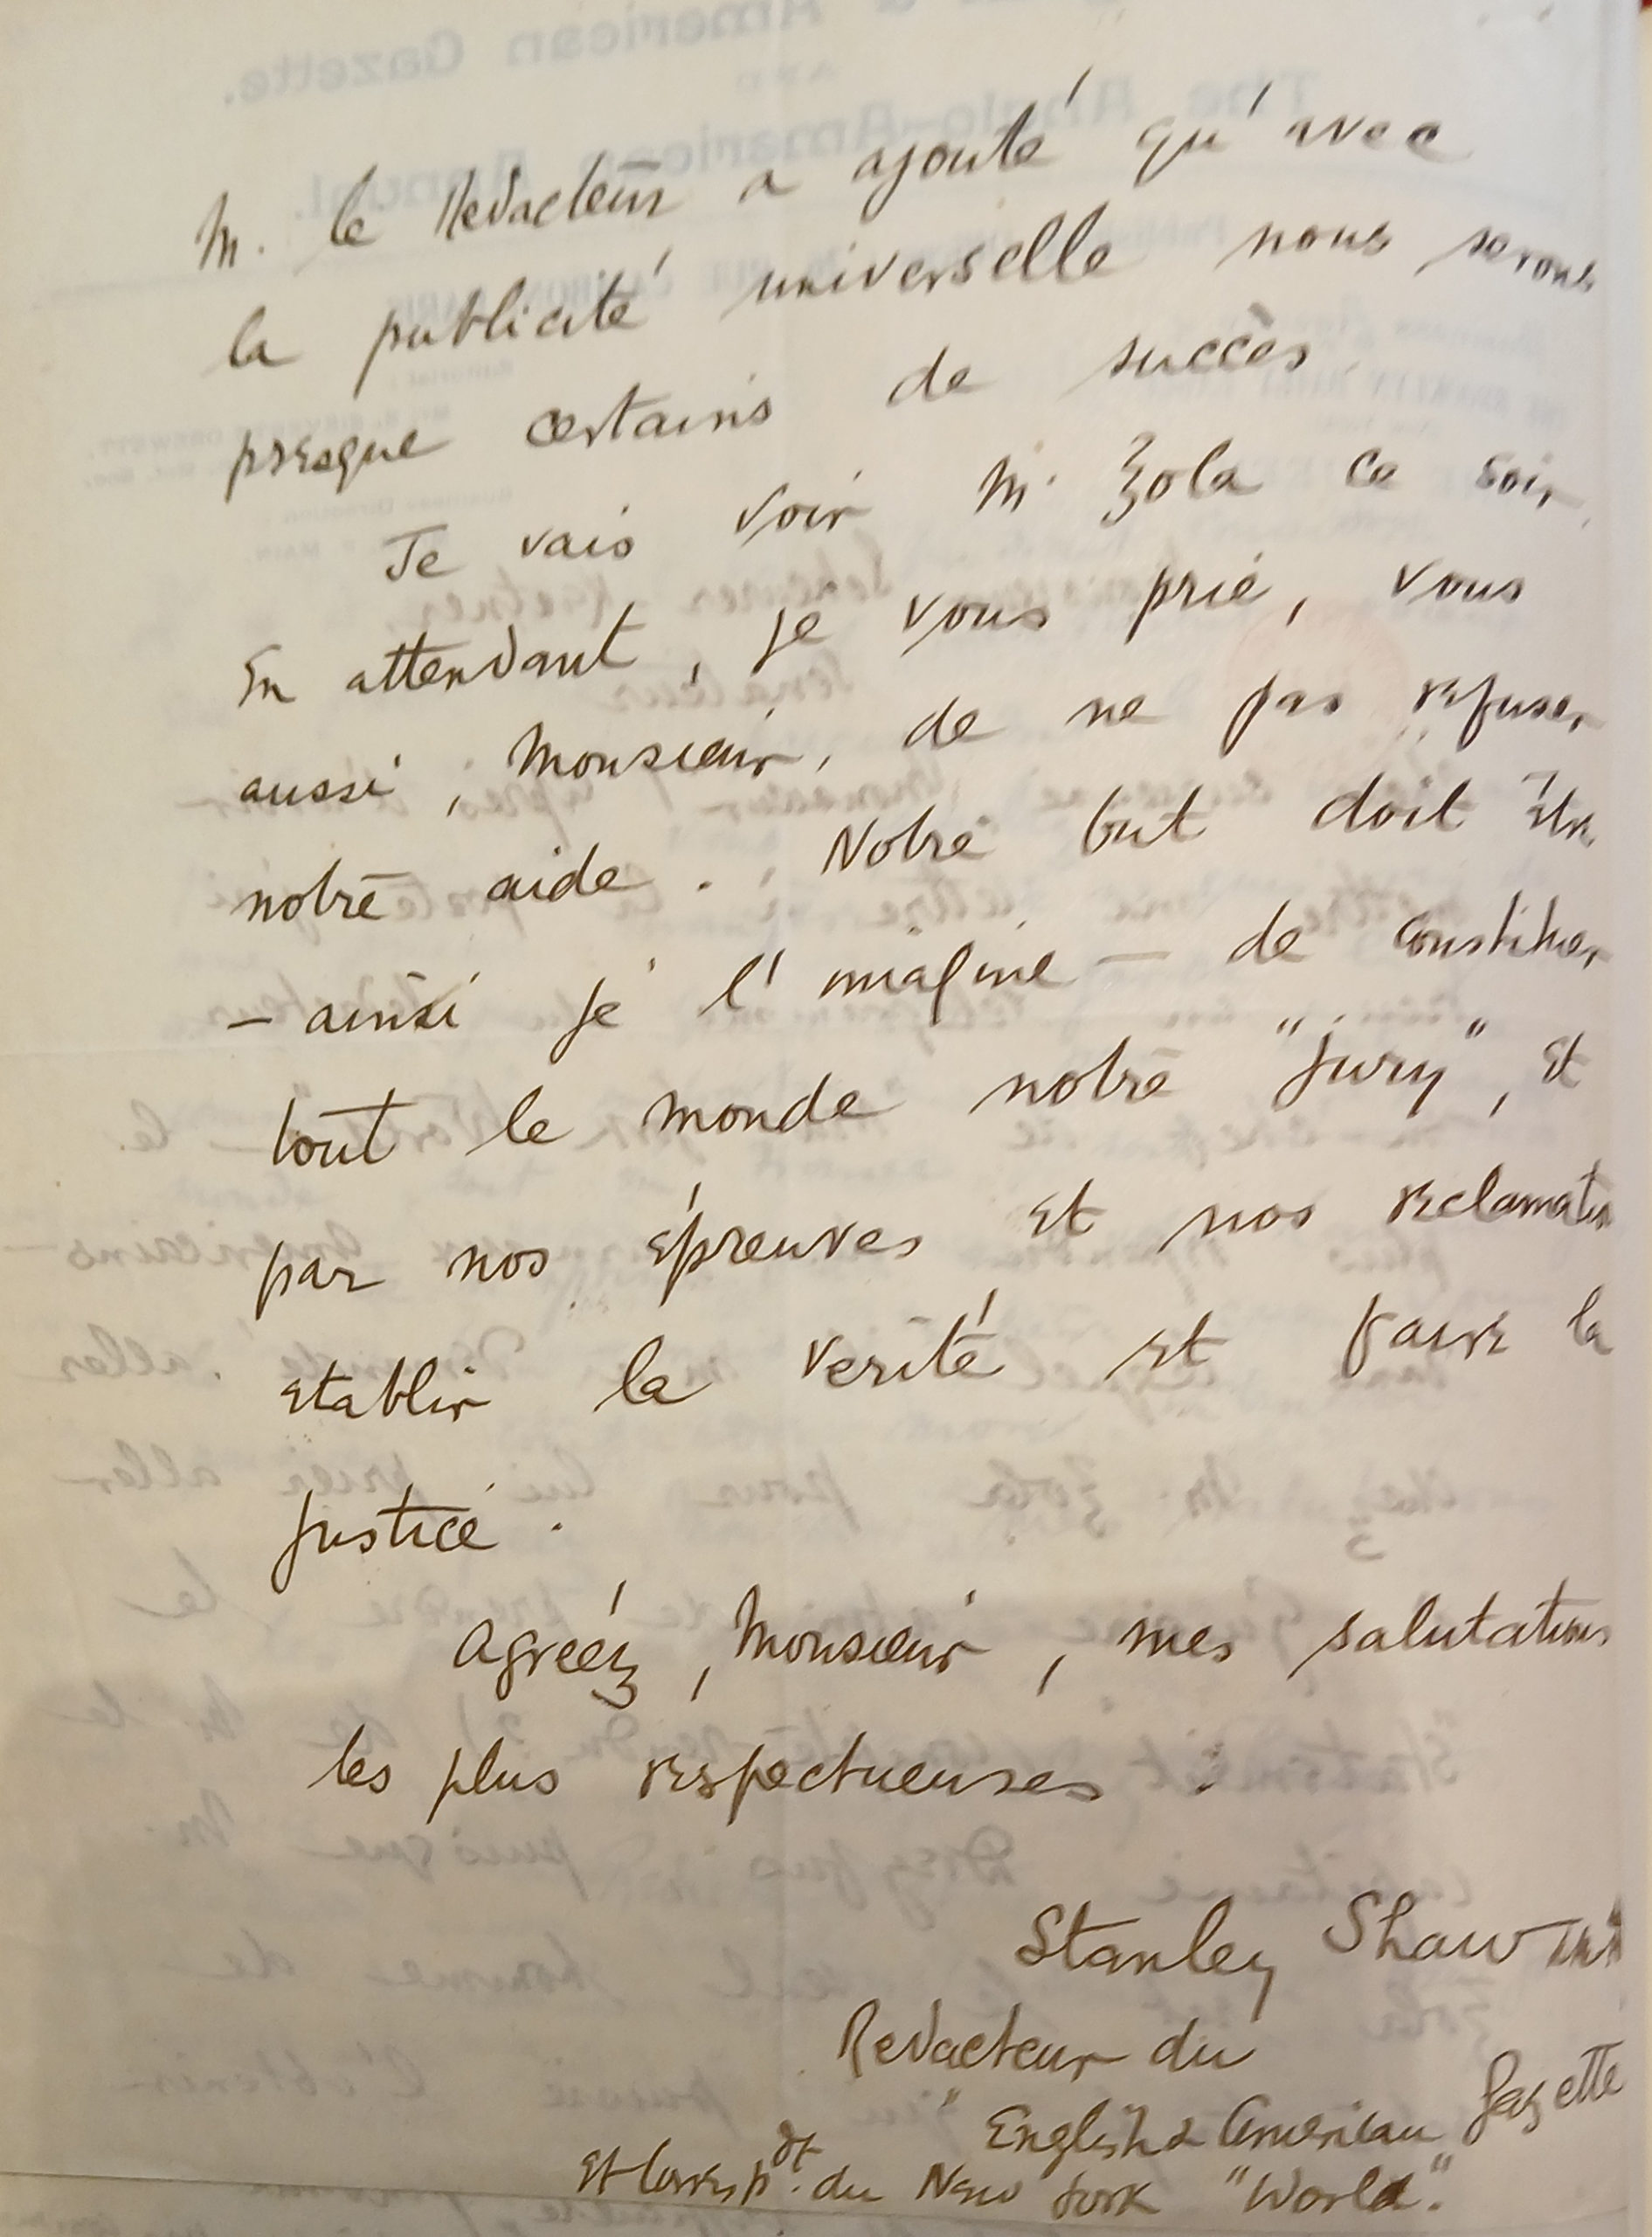 M. le Redacteur a ajouté qu'avec
la publicité universelle nous serons
presque certains de succès.
Je vais voir M. Zola ce soir.
En attendant, je vous prie, vous
aussi, Monsieur, de ne pas refuser
notre aide. Notre but doit être
— ainsi je l'imagine — de constituer
tout le monde notre "jury", et
par nos épreuves et nos reclamations
etablir la verité et faire la
justice.
Agreéz, Monsieur, mes salutations
les plus respectueuses.
Stanley Shaw
Redacteur du
"English & American Gazette
et Corresp.dt du New York "World."